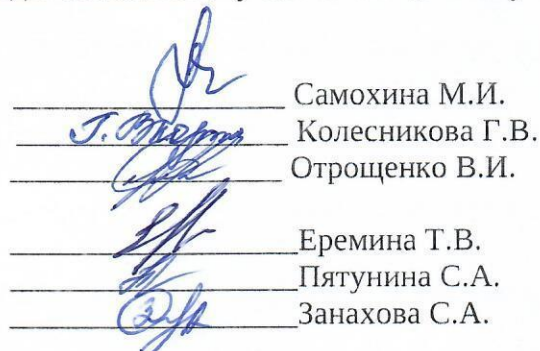 Самохина М.И.
Колесникова Г.В.
Отрощенко В.И.
Еремина Т.В.
Пятунина С.А.
Занахова С.А.